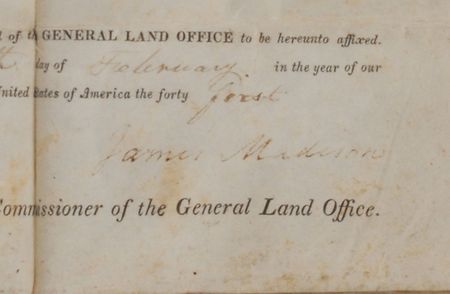 of th GENERAL LAND OFFICE to be hereunto affixed.
th day of February in the year of our
United States of America the forty first
James Madison
Commissioner of the General Land Office.